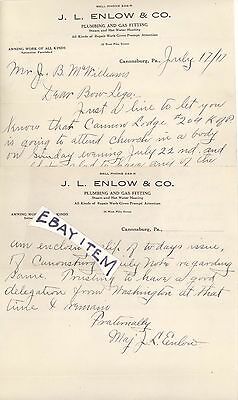 BELL PHONE 243-R
J. L. ENLOW & CO.
PLUMBING AND GAS FITTING
Steam and Hot Water Heating
All Kinds of Repair Work Given Prompt Attention
ANNING WORK OF ALL KINDS
Canonsburg, Pa., July 17/17
Mr J. B. McWilliams
Dear Bow Legs:
Just a line to let you
know that Cannon Lodge # 209 K of P
is going to attend Church in a body
on Sunday evening July 22nd, and
BELL PHONE 243-R
J. L. ENLOW & CO.
PLUMBING AND GAS FITTING
Steam and Hot Water Heating
All Kinds of Repair Work Given Prompt Attention
OF ALL KINDS
Canonsburg, Pa.,
EBAY ITEM
am enclosing slip of to days issue,
of Canonsburg Daily Notes regarding
same. Trusting to have a good
delegation from Washington at that
time I remain
Fraternally
Maj. J. L. Enlow